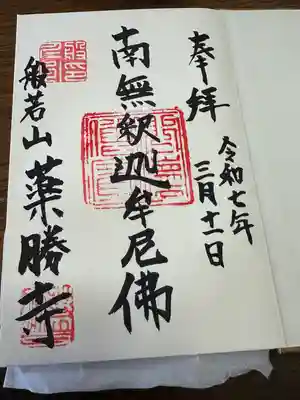 奉拝
令和七年
三月十一日
南無釈迦牟尼佛
般若山
薬勝寺